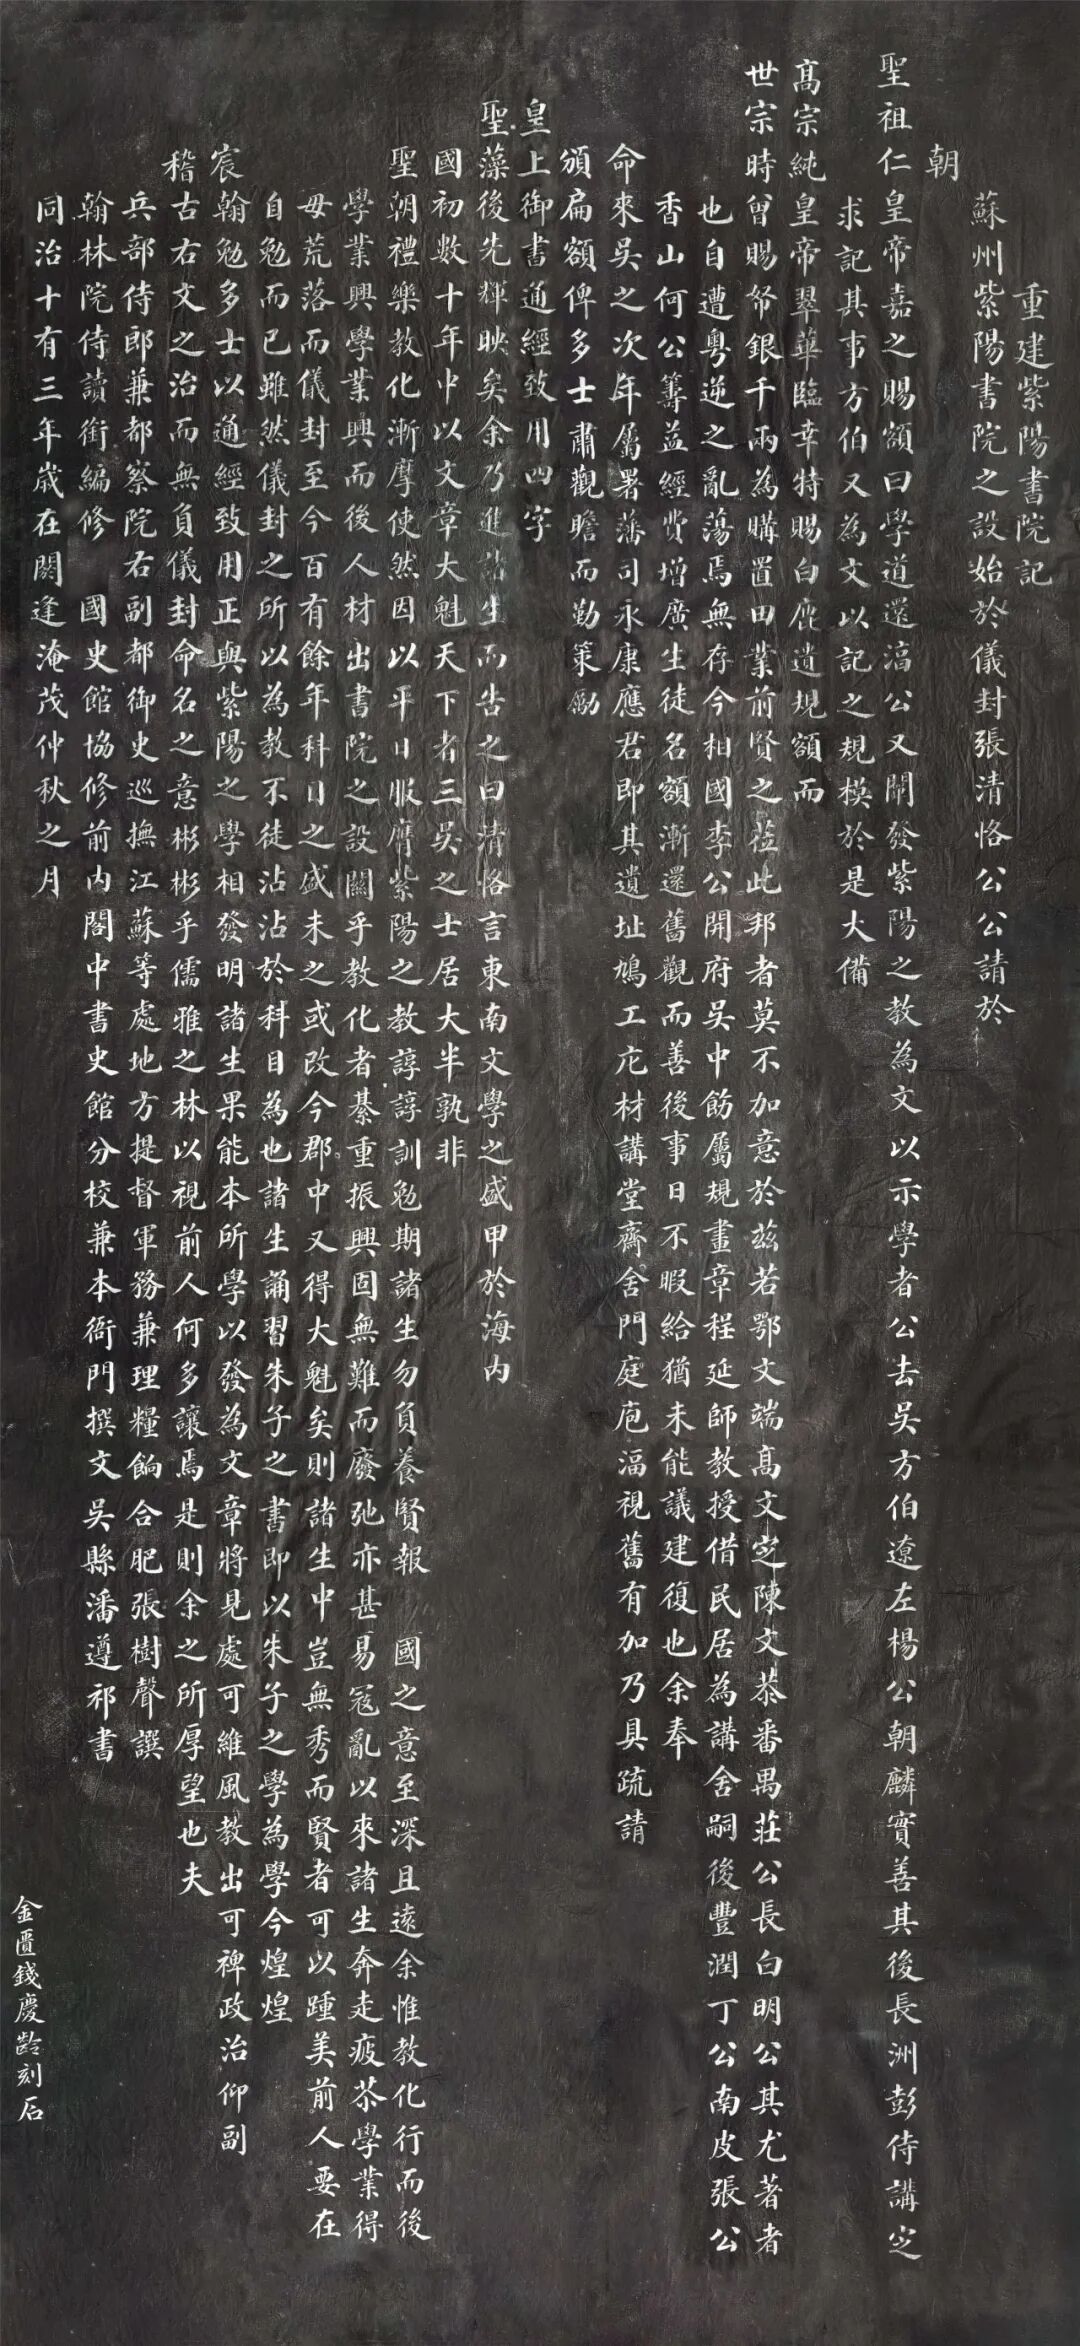 重建紫陽書院記
蘇州紫陽書院之設始於儀封張清恪公公請於
朝
聖祖仁皇帝嘉之賜額曰學道還淳公又闡發紫陽之教為文以示學者公去吳方伯遼左楊公朝麟實善其後長洲彭侍講定
求記其事方伯又為文以記之規模於是大備
高宗純皇帝翠華臨幸特賜白鹿遺規額而
世宗時曾賜帑銀千兩為購置田業前賢之莅此邦者莫不加意於茲若鄂文端高文定陳文恭番禺莊公長白明公其尤著者
也自遭粵逆之亂蕩焉無存今相國李公開府吳中飭屬規畫章程延師教授借民居為講舍嗣後豐潤丁公南皮張公
香山何公籌益經費增廣生徒名額漸還舊觀而善後事日不暇給猶未能議建復也余奉
命來吳之次年屬署藩司永康應君即其遺址鳩工庀材講堂齋舍門庭庖湢視舊有加乃具疏請
頒扁額俾多士肅觀瞻而勤策勵
皇上御書通經致用四字
聖藻後先輝映矣余乃進諸生而告之曰清恪言東南文學之盛甲於海內
國初數十年中以文章大魁天下者三吳之士居大半孰非
聖朝禮樂教化漸摩使然因以平日服膺紫陽之教諄諄訓勉期諸生勿負養賢報 國之意至深且遠余惟教化行而後
學業興學業興而後人材出書院之設關乎教化者綦重振興固無難而廢弛亦甚易寇亂以來諸生奔走疲苶學業得
毋荒落而儀封至今百有餘年科目之盛未之或改今郡中又得大魁矣則諸生中豈無秀而賢者可以踵美前人要在
自勉而已雖然儀封之所以為教不徒沾沾於科目為也諸生誦習朱子之書即以朱子之學為學今煌煌
宸翰勉多士以通經致用正與紫陽之學相發明諸生果能本所學以發為文章將見處可維風教出可裨政治仰副
稽古右文之治而無負儀封命名之意彬彬乎儒雅之林以視前人何多讓焉是則余之所厚望也夫
兵部侍郎兼都察院右副都御史巡撫江蘇等處地方提督軍務兼理糧餉合肥張樹聲譔
翰林院侍讀銜編修 國史館協修前內閣中書史館分校兼本衙門撰文吳縣潘遵祁書
同治十有三年歲在閼逢淹茂仲秋之月
金匱錢慶齡刻石